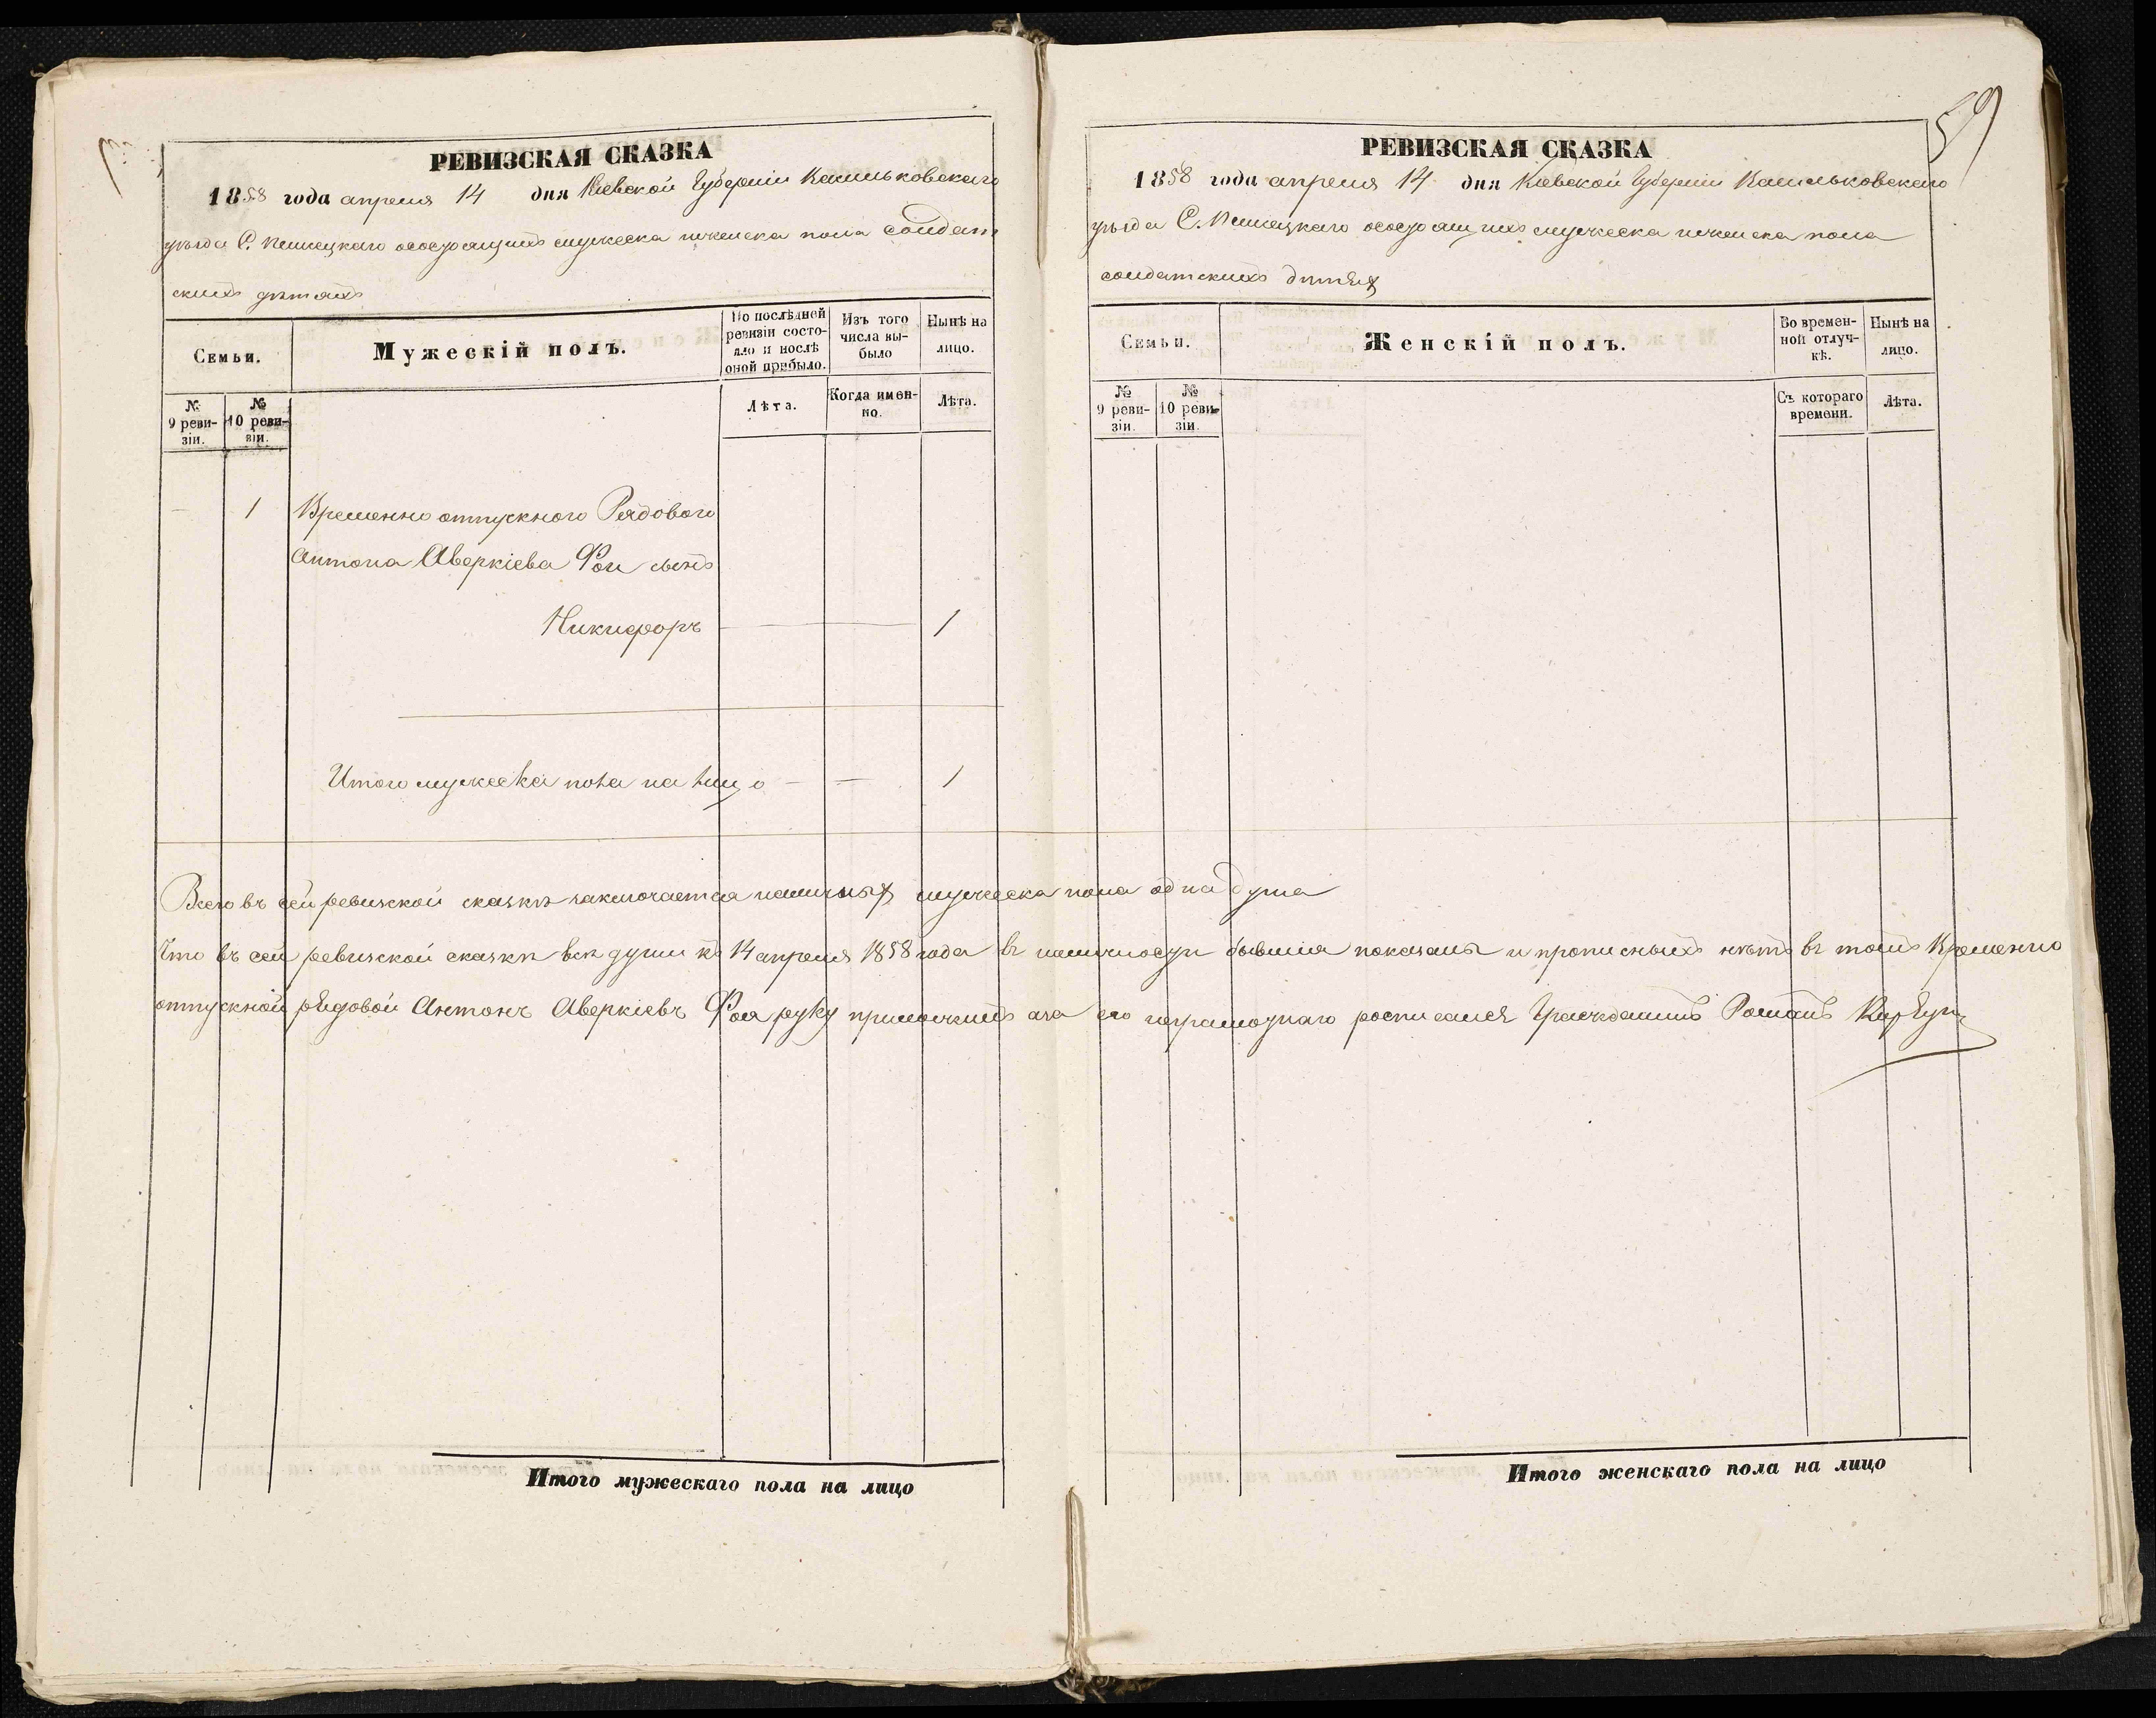 59
РЕВИЗСКАЯ СКАЗКА
1858 года апреля 14 дня Кіевской Губерніи Васильковскаго
уѣзда С. осостоящихъ мужеска иженска пола солдат
скихъ дѣтяхъ
Семьи.
Мужескій полъ.
По послѣдней ревизіи состояло и послѣ оной прибыло.
Изъ того числа выбыло
Нынѣ на лицо.
№ 9 ревизіи.
№ 10 ревизіи.
Лѣта.
Когда именно.
Лѣта.
— 1 Временно отпускного Рядового
Антона Аверкіева Фои сынъ
Никифоръ — — 1
Итого мужеска пола на лицо — — 1
Всего въ сей ревизской сказкѣ заключается наличныхъ мужеска пола одна душа
Что въ сей ревизской сказкѣ всѣ души къ 14 апреля 1858 года въ наличности бывшія показаны и прописныхъ нѣтъ въ томъ Временно
отпускной рядовой Антонъ Аверкіевъ Фоя руку приложилъ аза его неграмотнаго росписался Гражданинъ Романъ
Итого мужескаго пола на лицо
РЕВИЗСКАЯ СКАЗКА
1858 года апреля 14 дня Кіевской Губерніи Васильковскаго
уѣзда С. осостоящихъ мужеска иженска пола
солдатскихъ дѣтях
Семьи.
Женскій полъ.
Во временной отлучкѣ.
Нынѣ на лицо.
№ 9 ревизіи.
№ 10 ревизіи.
Съ котораго времени.
Лѣта.
Итого женскаго пола на лицо